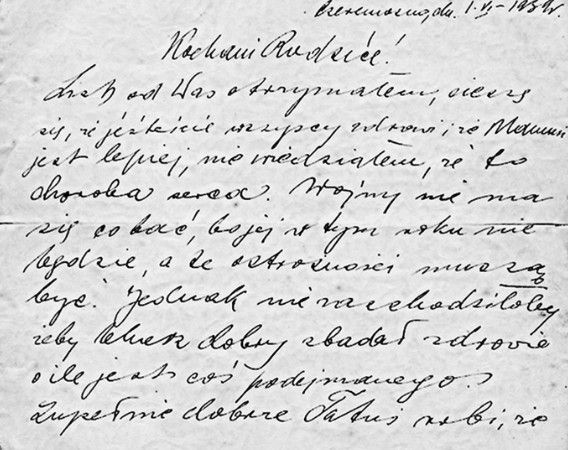 1. VI - 1939 r.
Kochani Rodzice!
List od Was otrzymałem, cieszę
się, że jesteście wszyscy zdrowi, że Mamusi
jest lepiej, nie wiedziałem, że to
choroba serca. Wojny nie ma
się co bać, bo jej w tym roku nie
będzie, a że ostrożności muszą
być. Jednak nie zaszkodziłoby
żeby lekarz dobry zbadał zdrowie
o ile jest coś podejrzanego.
Zupełnie dobrze Tatuś robi, że